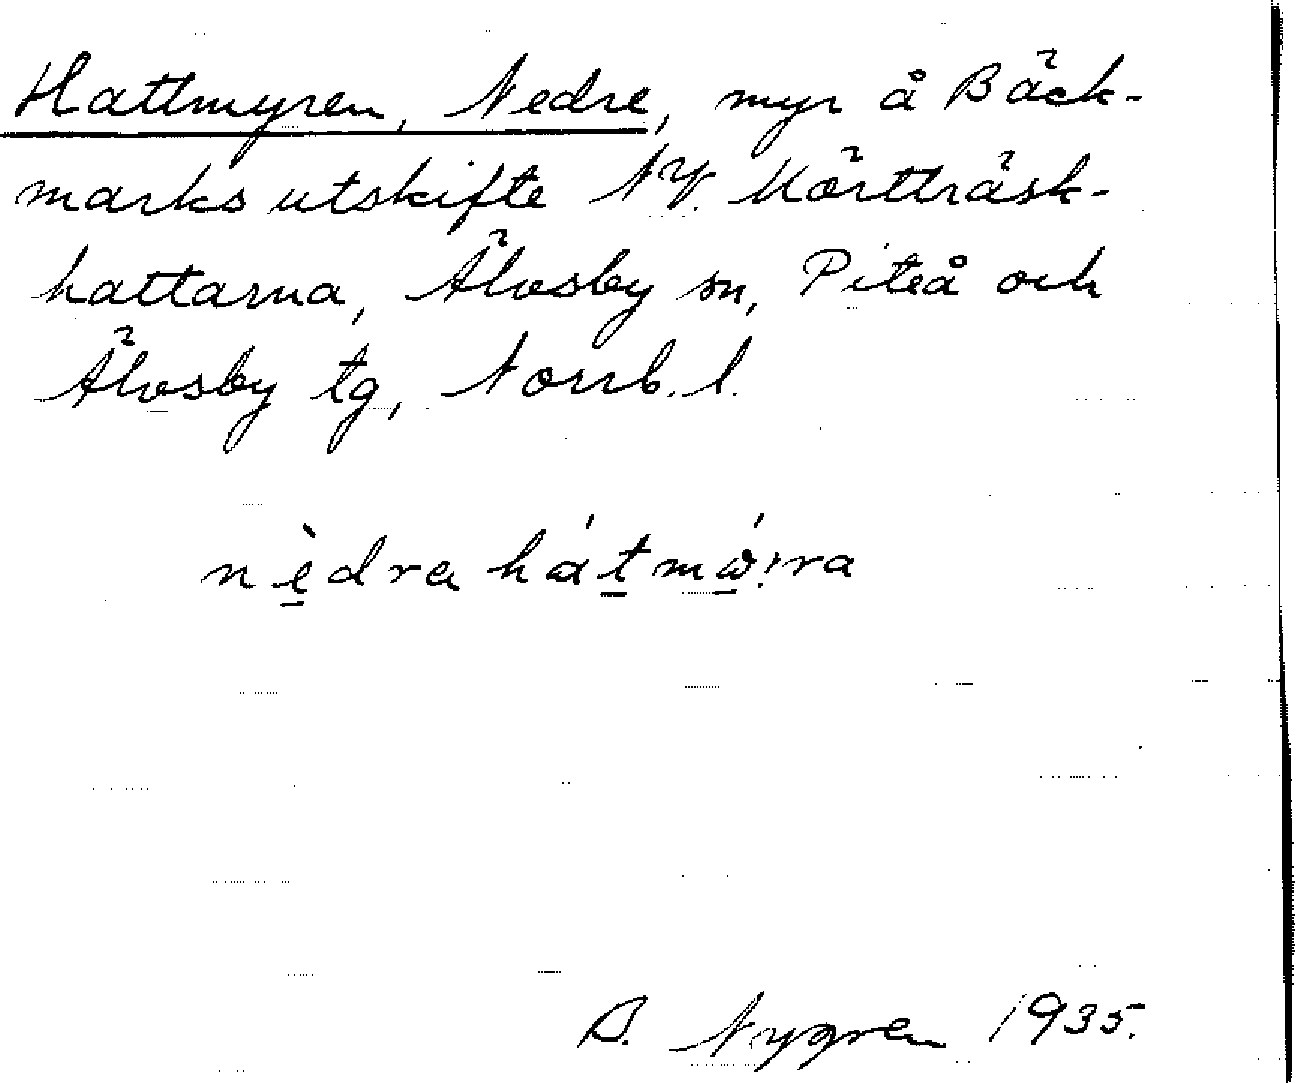 Hattmyren, Nedre, myr å Bäck-
marks utskifte NV. Mörtträsk-
hattarna, Älvsby sn, Piteå och
Älvsby tg, Norrb. l.
nèdra hátmó̱!ra
Nygren 1935.